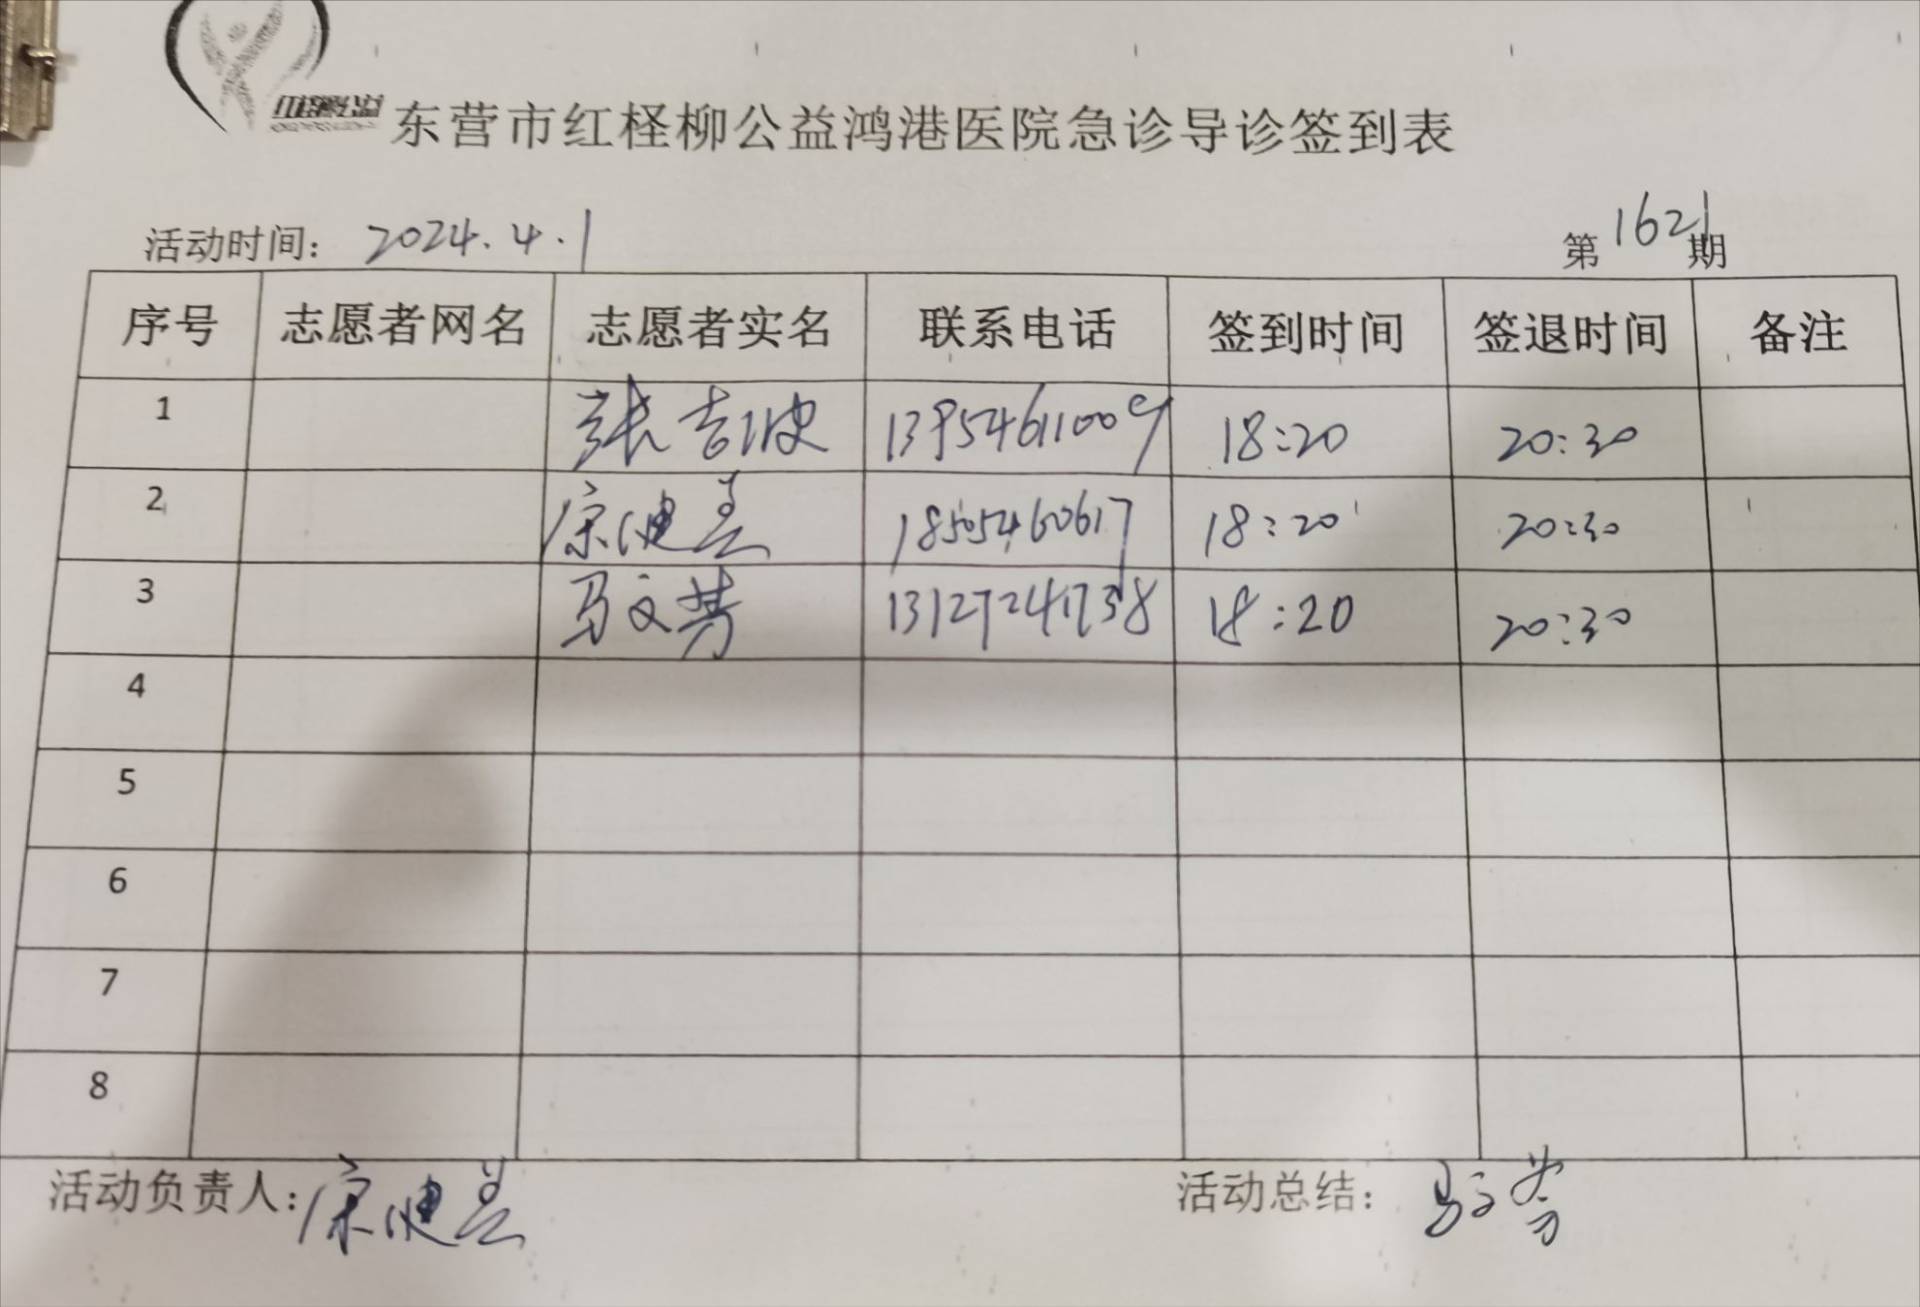 红柽柳公益
东营市红柽柳公益鸿港医院急诊导诊签到表
活动时间: 2024.4.1 第1621期
序号 志愿者网名 志愿者实名 联系电话 签到时间 签退时间 备注
1 张吉波 13954611009 18:20 20:30
2 宋健美 18505460617 18:20 20:30
3 马文芳 13127241738 18:20 20:30
4
5
6
7
8
活动负责人: 宋健美 活动总结: 马文芳